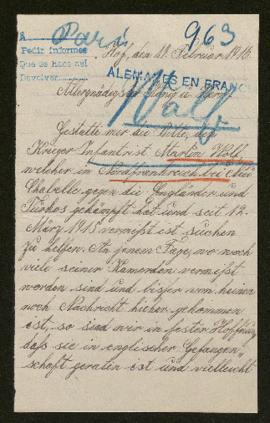 A París 963
Pedir informes
Que se hace así
Devolver
Hof, den 21. Februar 1916
ALEMANES EN FRANC
Allergnädigster König u. Herr!
Wolf
Gestatte mir die Bitte, den
Krieger Infanterist Martin Wolf
welcher in Nordfrankreich bei Neuve
Chapelle gegen die Engländer und
Turkos gekämpft hat und seit 12.
März 1915 vermißt ist suchen
zu helfen. An jenem Tage, wo noch
viele seiner Kameraden vermißt
worden sind und bisher von keinem
noch Nachricht hieher gekommen
ist, so sind wir in fester Hoffnung
daß sie in englischer Gefangen-
schaft geraten ist und vielleicht